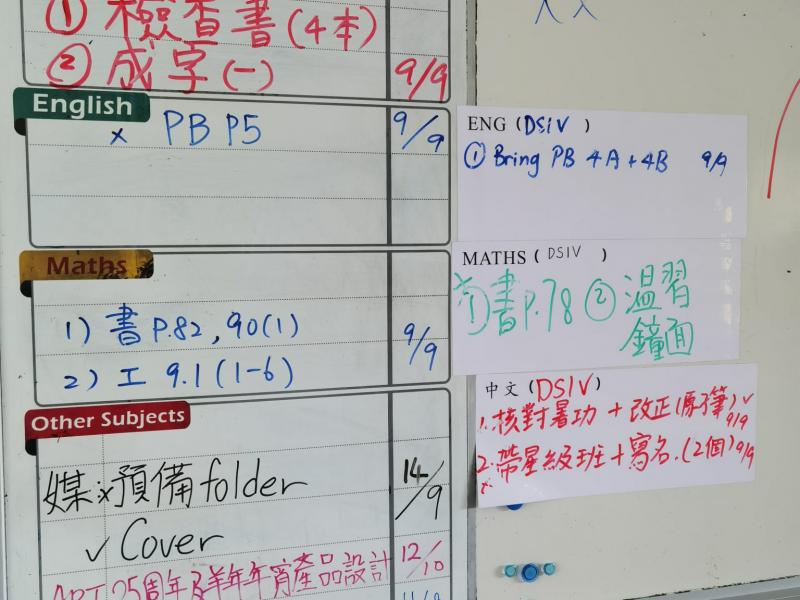 ① 檢查書(4本)
② 成字(一) 9/9
English
x PB P5 9/9
Maths
1) 書 P.82, 90(1)
2) 工 9.1 (1-6) 9/9
Other Subjects
媒: x 預備folder 14/9
✓ Cover
25周年及羊年年宵產品設計 12/10
ENG (DSIV)
① Bring PB 4A + 4B 9/9
MATHS (DSIV)
① 書P.78 ② 溫習
鐘面
中文 (DSIV)
1. 核對暑功 + 改正 ✓ 9/9
2. 帶星級班+寫名. (2個) 9/9